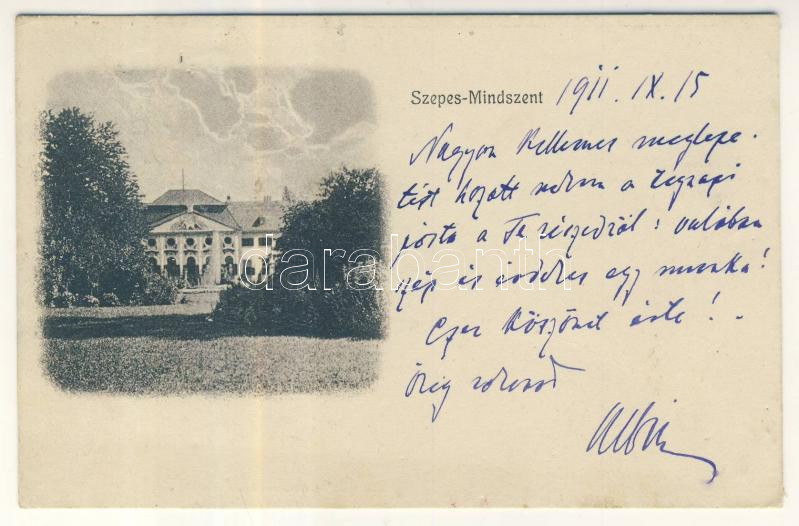 Szepes-Mindszent 1911. IX. 15
Nagyon kellemes meglepe-
tést hozott nekem a tegnapi
posta a Te részedről: valóban
szép és érdekes egy munka!
Ezer köszönet érte! -
Albin
darabanth